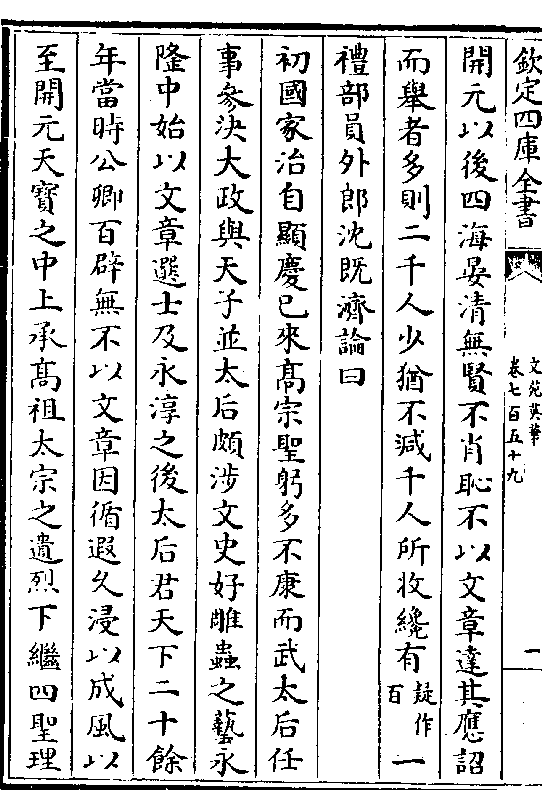 欽定四庫全書
文苑英華
卷七百五十九
一
開元以後四海晏清無賢不肖恥不以文章達其應詔
而舉者多則二千人少猶不減千人所收纔有疑作百一
禮部員外郎沈既濟論曰
初國家治自顯慶已來高宗聖躬多不康而武太后任
事參決大政與天子並太后頗涉文史好雕蟲之藝永
隆中始以文章選士及永淳之後太后君天下二十餘
年當時公卿百辟無不以文章因循遐久浸以成風以
至開元天寶之中上承高祖太宗之遺烈下繼四聖理